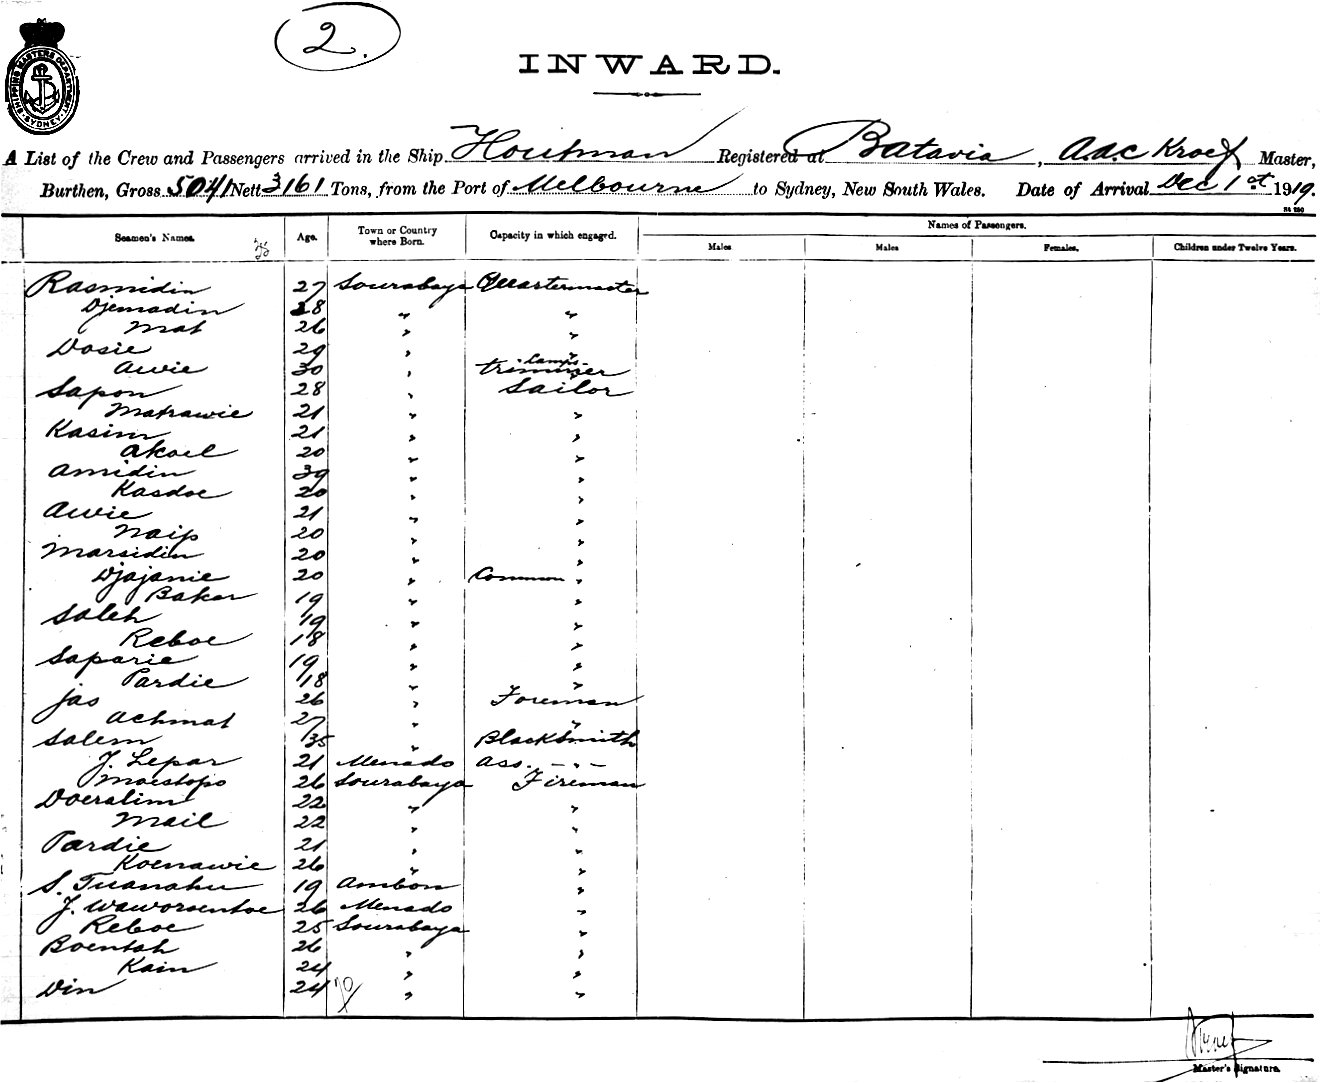 2.
SHIPPING MASTERS DEPARTMENT SYDNEY
INWARD.
A List of the Crew and Passengers arrived in the Ship Houtman Registered at Batavia, A.d.C Kroef Master,
Burthen, Gross 5041 Nett 3161 Tons, from the Port of Melbourne to Sydney, New South Wales. Date of Arrival Dec 1st 1919.
Names of Passengers.
Seamen's Names. Age. Town or Country where Born. Capacity in which engaged. Males Males Females. Children under Twelve Years.
Rasmidin 27 Sourabaya Quartermaster
Djemadin 28 " "
Mat 26 " "
Dosie 29 " "
Awie 30 " Lamp trimmer
Sapon 28 " Sailor
Matrawie 21 " "
Kasim 21 " "
Akoel 20 " "
Amidin 39 " "
Kasdoe 20 " "
Awie 21 " "
Naip 20 " "
Marsidin 20 " "
Djajanie 20 " Common "
Baker 19 " "
Saleh 19 " "
Reboe 18 " "
Saparie 19 " "
Pardie 18 " "
Jas 26 " Foreman
Achmat 27 " "
Salem 35 " Blacksmith
J. Lepar 21 Menado Ass. - " -
Moestopo 26 Sourabaya Fireman
Doeralim 22 " "
Mail 22 " "
Pardie 21 " "
Koenawie 26 " "
S. Tuanahu 19 Ambon "
J. Waworoentoe 26 Menado "
Reboe 25 Sourabaya "
Boentah 26 " "
Kain 24 " "
Din 24 " "
Master's Signature.